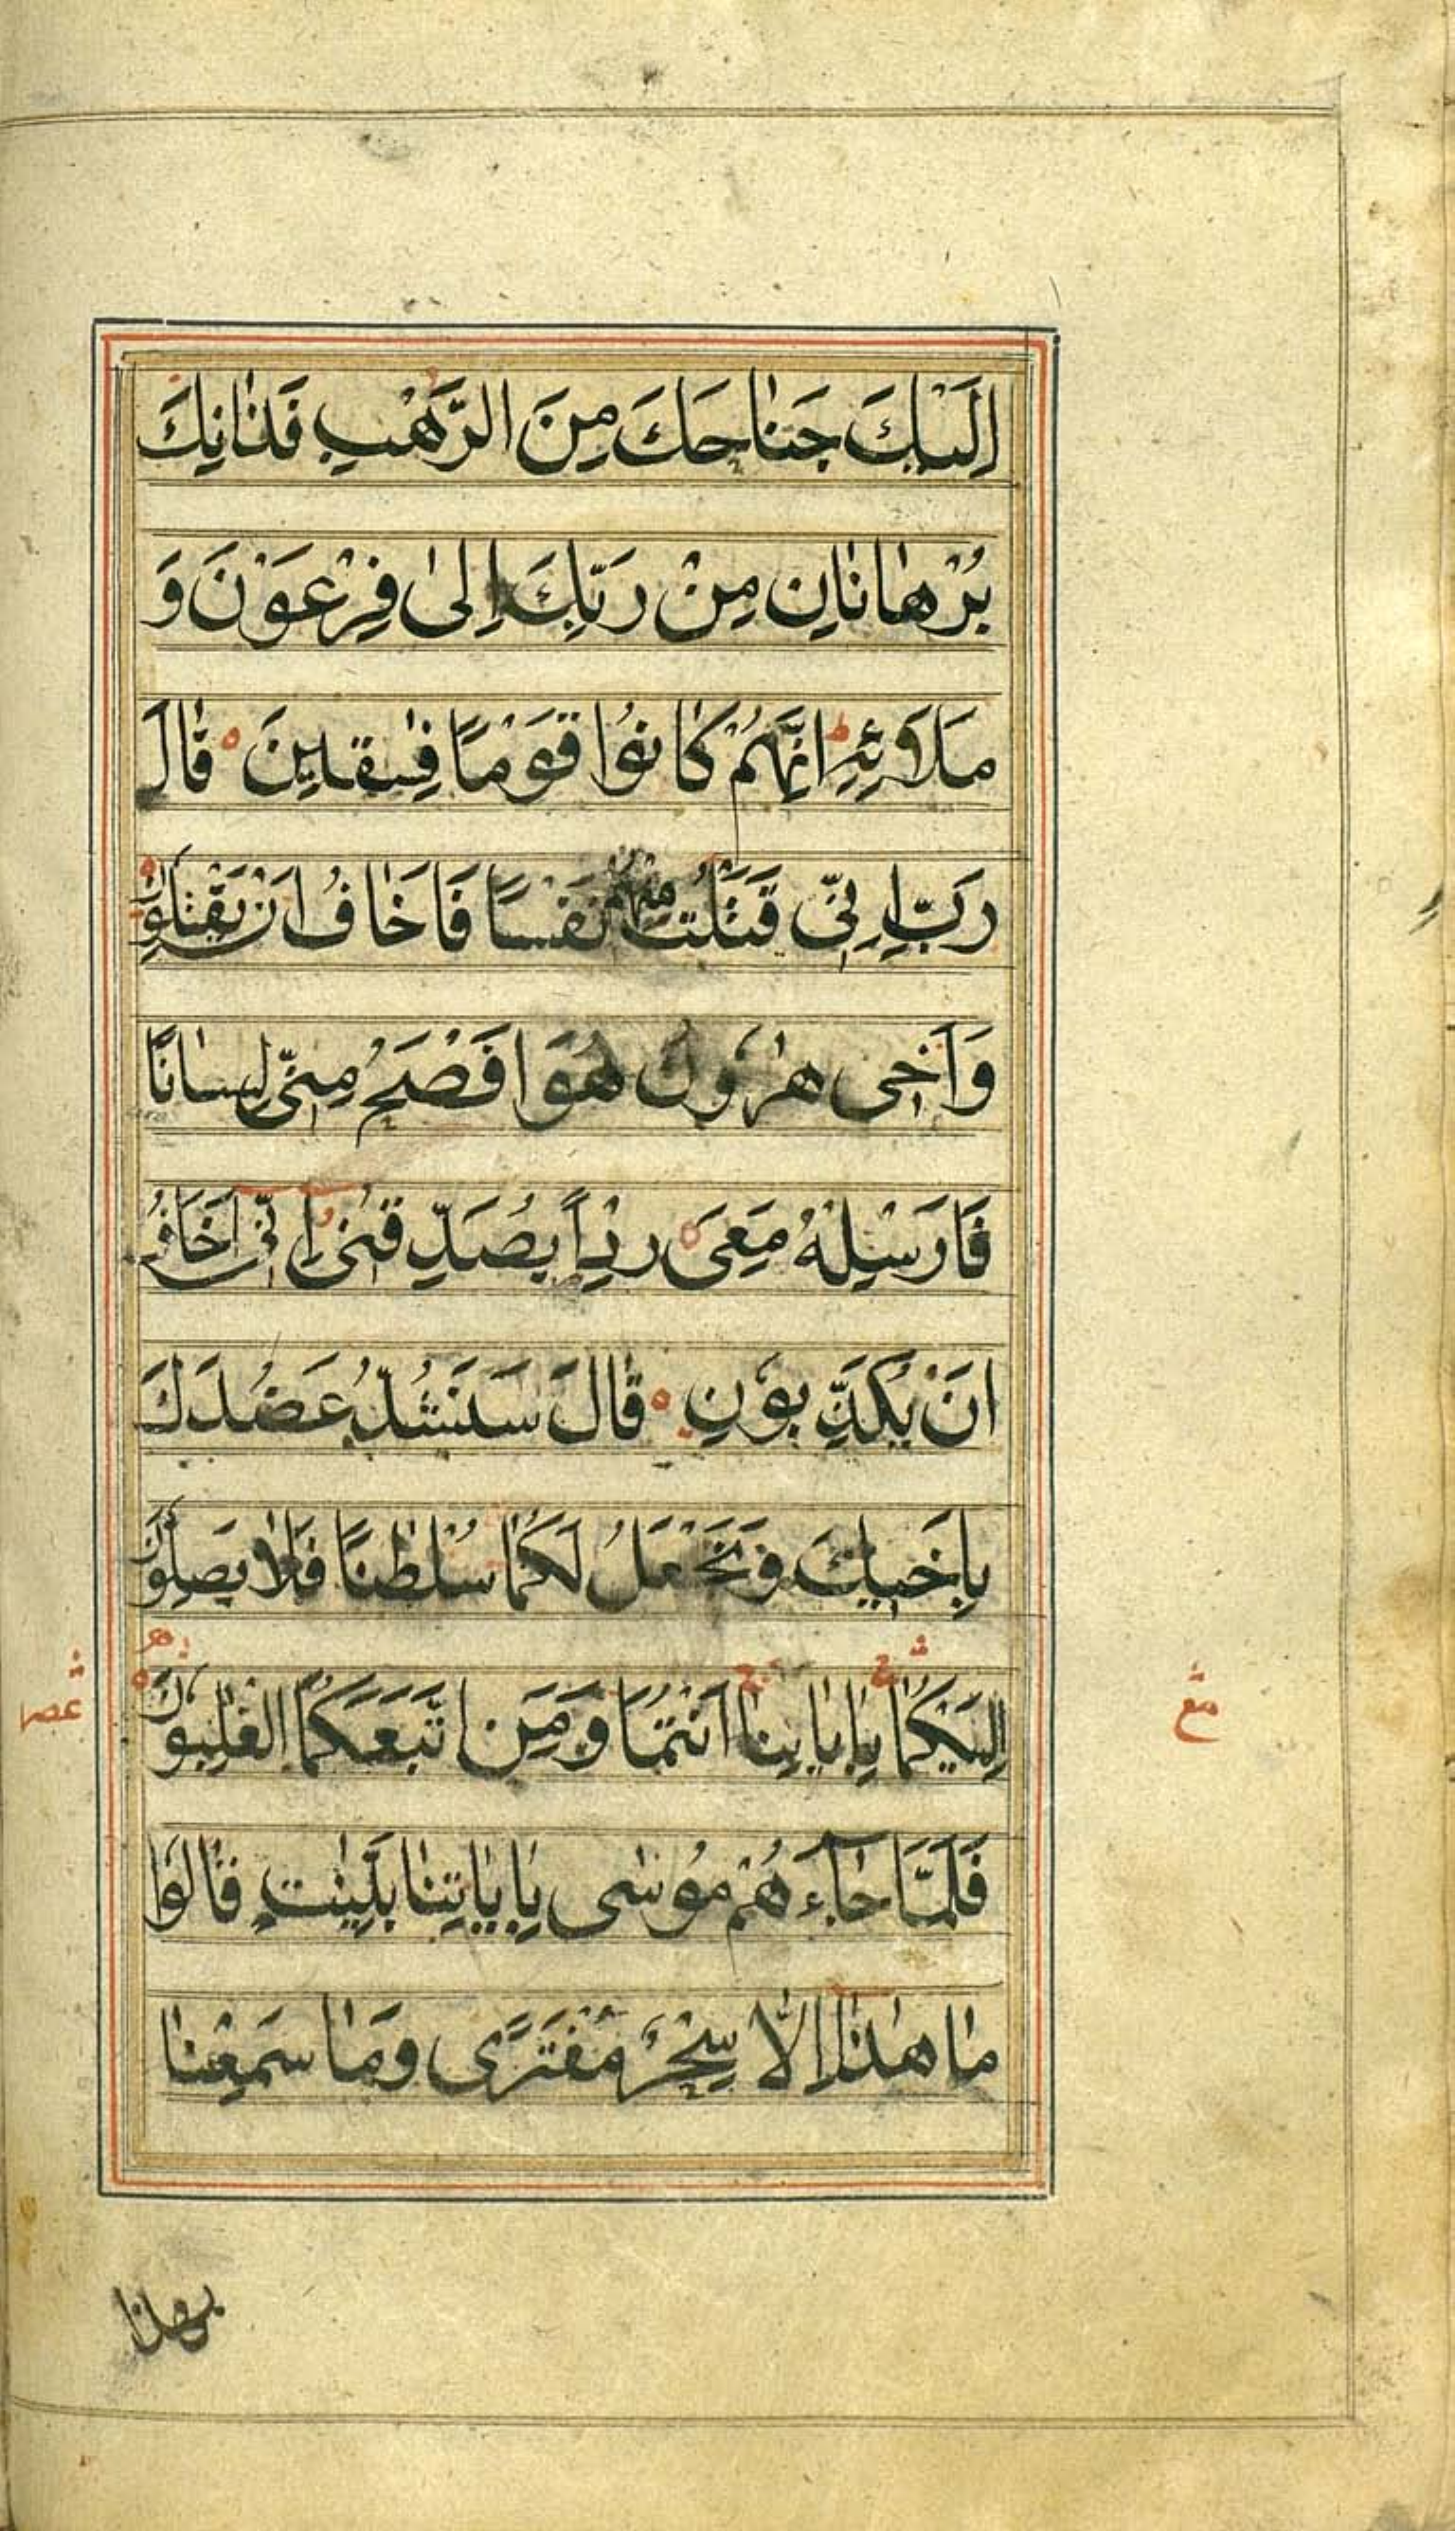 اِلَيْكَ جَنَاحَكَ مِنَ الرَّهْبِ فَذَانِكَ
بُرْهَانَانِ مِنْ رَبِّكَ اِلىٰ فِرْعَوْنَ وَ
مَلَا۟ئِهٖ ط اِنَّهُمْ كَانُوْا قَوْمًا فٰسِقِيْنَ ه قَالَ
رَبِّ اِنِّى قَتَلْتُ مِنْهُمْ نَفْسًا فَاَخَافُ اَنْ يَقْتُلُوْنِ ه
وَاَخِى هٰرُوْنُ هُوَ اَفْصَحُ مِنِّى لِسَانًا
فَاَرْسِلْهُ مَعِىَ رِدْاً يُصَدِّقُنِى اِنِّى اَخَافُ
اَنْ يُكَذِّبُوْنِ ه قَالَ سَنَشُدُّ عَضُدَكَ
بِاَخِيْكَ وَنَجْعَلُ لَكُمَا سُلْطٰنًا فَلَا يَصِلُوْنَ
اِلَيْكُمَا بِاٰيَاتِنَا اَنْتُمَا وَمَنِ اتَّبَعَكُمَا الْغٰلِبُوْنَ ه
فَلَمَّا جَآءَهُمْ مُوْسٰى بِاٰيَاتِنَا بَيِّنٰتٍ قَالُوْا
مَا هٰذَا اِلَّا سِحْرٌ مُفْتَرًى وَمَا سَمِعْنَا
بهذا